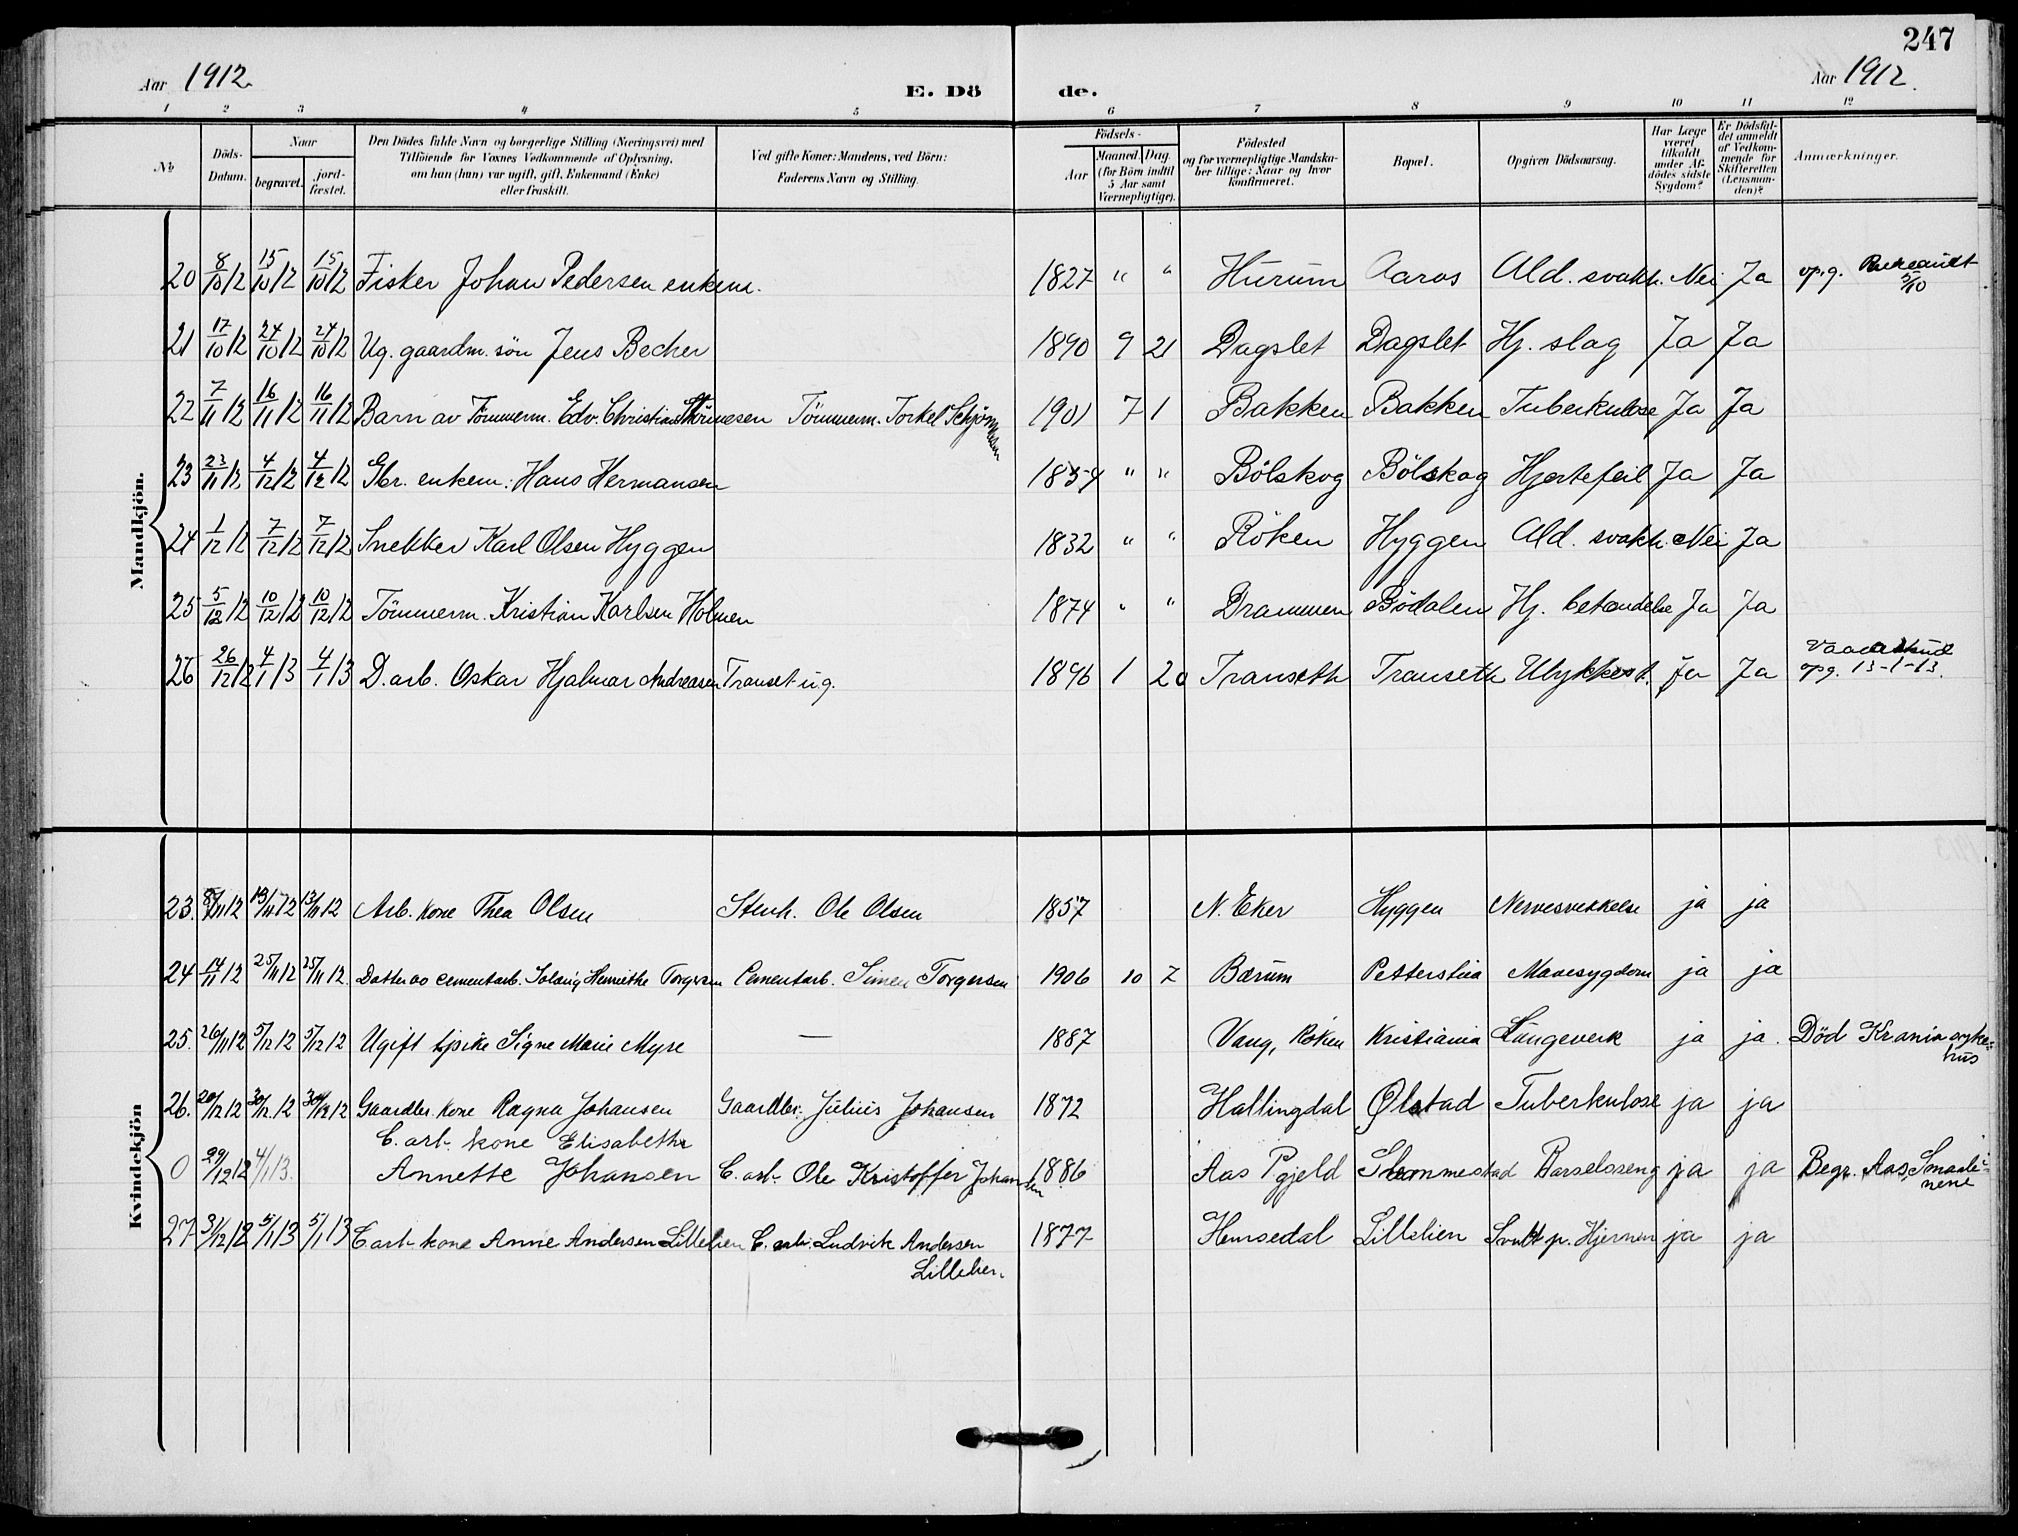 247
Aar 1912.
E. Dö de.
Aar 1912.
1 2 3 4 5 6 7 8 9 10 11 12
No
Döds-Datum.
Naar
begravet.
jord-fæstet.
Den Dödes fulde Navn og borgerlige Stilling (Næringsvei) med
Tilföiende for Voxnes Vedkommende af Oplysning,
om han (hun) var ugift, gift, Enkemand (Enke)
eller fraskilt.
Ved gifte Koner: Mandens, ved Börn:
Faderens Navn og Stilling.
Födsels-
Aar
Maaned. Dag.
(for Börn indtil
5 Aar samt
Værnepligtige).
Födested
og for værnepligtige Mandska-
ber tillige: Naar og hvor
konfirmeret.
Bopæl.
Opgiven Dödsaarsag.
Har Læge
været
tilkaldt
under Af-
dödes sidste
Sygdom?
Er Dödsfal-
det anmeldt
af Vedkom-
mende for
Skifteretten
(Lensman-
den)?
Anmærkninger.
Mandkjön.
20 8/10 12 15/10 12 15/10 12 Fisker Johan Pedersen enkem. 1827 " " Hurum Aaros Ald. svakh. Nei Ja opg. 5/10
21 17/10 12 24/10 12 24/10 12 Ug. gaardm. sön Jens Becher 1890 9 21 Dagslet Dagslet Hj. slag Ja Ja
22 7/11 12 16/11 12 16/11 12 Barn av Tömmerm. Edv. Christian Tömmerm. Torkel 1901 7 1 Bakken Bakken Tuberkulose Ja Ja
23 23/11 12 4/12 12 4/12 12 Gbr. enkem. Hans Hermansen 1834 " " Bölskog Bölskog Hjertefeil Ja Ja
24 1/12 12 7/12 12 7/12 12 Snekker Karl Olsen Hyggen 1832 " " Röken Hyggen Ald. svakh. Nei Ja
25 5/12 12 10/12 12 10/12 12 Tömmerm. Kristian Karlsen Holmen 1874 " " Drammen Bödalen Hj. betændelse Ja Ja
26 26/12 12 4/1 13 4/1 13 D. arb. Oskar Hjalmar Andreasen Transet ug. 1896 1 20 Transeth Transeth Ulykkest. Ja Ja opg. 13-1-13.
Kvindekjön
23. 8/11 12 13/11 12 13/11 12 Arb. kone Thea Olsen Stenh. Ole Olsen 1857 N. Eker Hyggen Nervesvekkelse ja ja
24 14/11 12 25/11 12 25/11 12. Datter av cementarb. Solveig Henriette Torgersen Cementarb. Simen Torgersen 1906 10 7 Bærum Petterslia Mavesygdom ja ja
25. 26/11 12 5/12 12 5/12 12 Ugift tjpike Signe Marie Myre — 1887 Vang, Röken Kristiania Lungeverk ja ja. Död Krania syke-
hus
26. 20/12 12 30/12. 12 30/12 12 Gaardbr. kone Ragna Johansen Gaardbr. Julius Johansen 1872 Hallingdal Ølstad Tuberkulose ja ja
C. arb. kone Elisabeth
0 29/12 12 4/1 13. Annette Johansen C. arb. Ole Kristoffer Johansen 1886 Aas Pgjeld Slemmestad Barselseng ja ja Begr. Aas, Smaale-
nene
27 31/12 12 5/1 13 5/1 13 C. arb. kone Anne Andersen Lillelien C. arb. Ludvik Andersen 1877 Hemsedal Lillelien Svulst p. Hjernen ja ja
Lillelien.